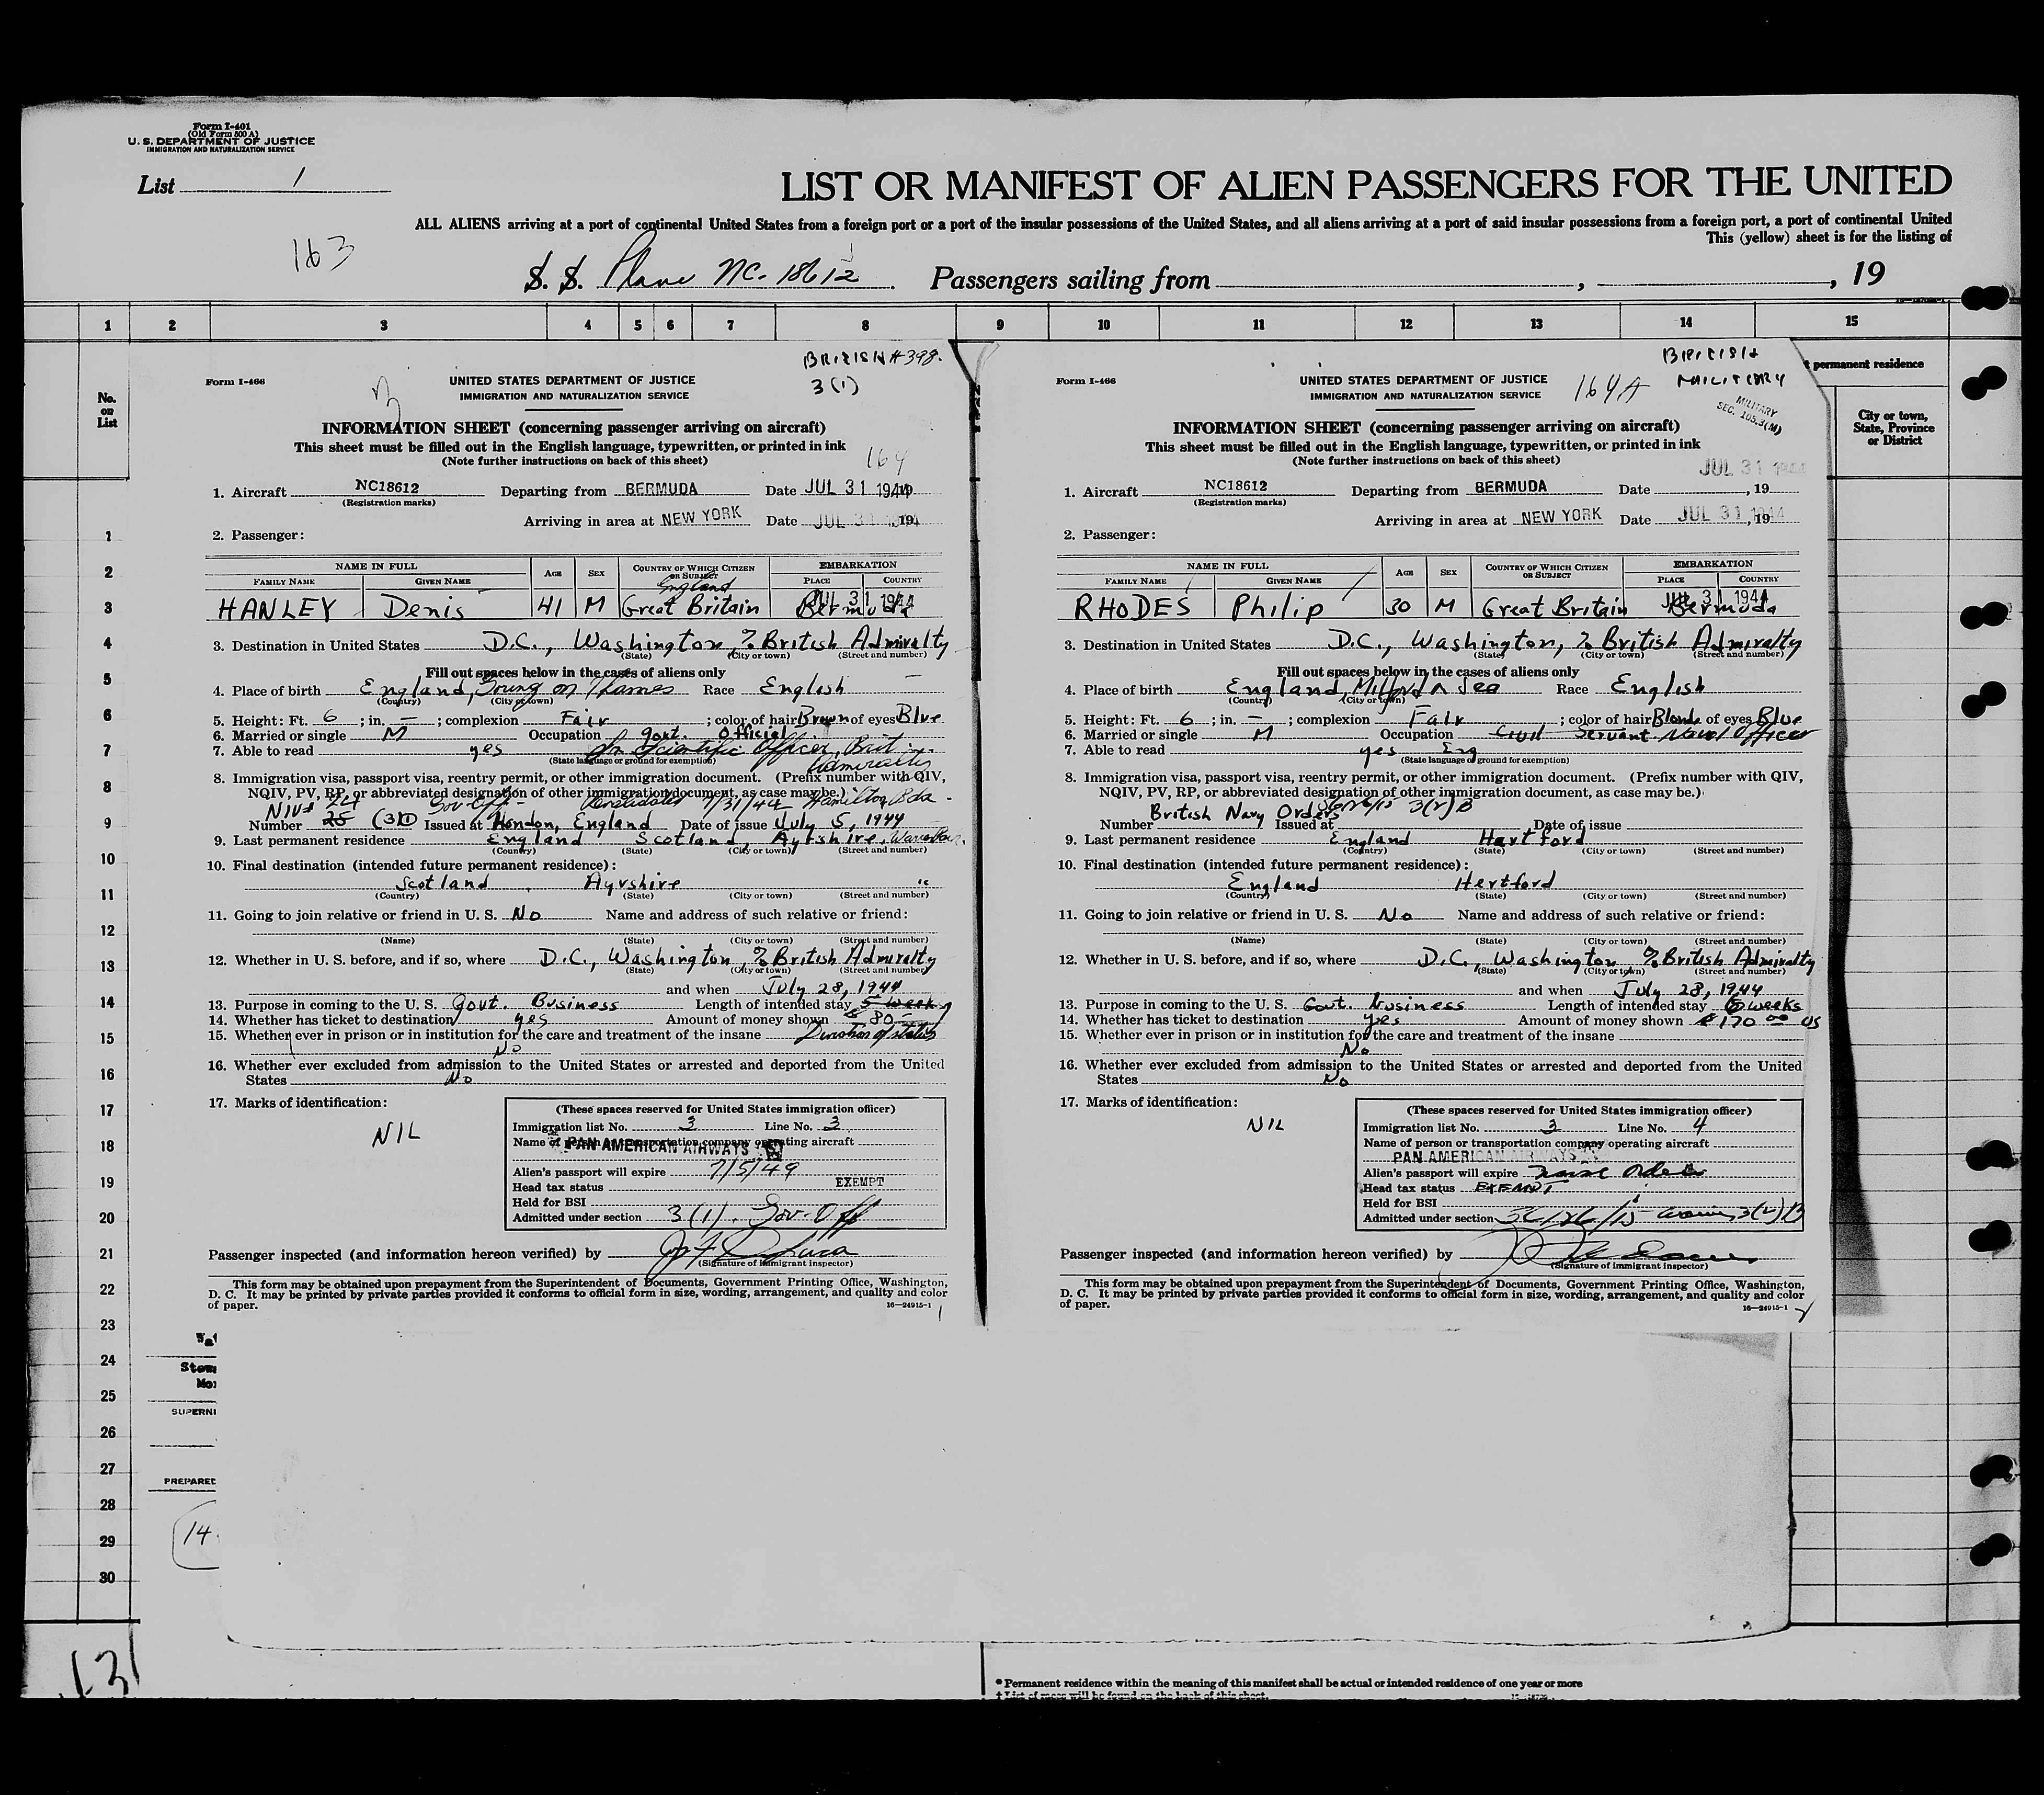 Form I-401
(Old Form 500 A)
U. S. DEPARTMENT OF JUSTICE
IMMIGRATION AND NATURALIZATION SERVICE
List 1
LIST OR MANIFEST OF ALIEN PASSENGERS FOR THE UNITED
ALL ALIENS arriving at a port of continental United States from a foreign port or a port of the insular possessions of the United States, and all aliens arriving at a port of said insular possessions from a foreign port, a port of continental United
This (yellow) sheet is for the listing of
163
S. S. Plane NC-18612 Passengers sailing from , , 19
1 2 3 4 5 6 7 8 9 10 11 12 13 14 15
No. on List
permanent residence
City or town, State, Province or District
1
2
3
4
5
6
7
8
9
10
11
12
13
14
15
16
17
18
19
20
21
22
23
24
25
26
27
28
29
30
BRITISH #398.
3(1)
Form I-466
UNITED STATES DEPARTMENT OF JUSTICE
IMMIGRATION AND NATURALIZATION SERVICE
INFORMATION SHEET (concerning passenger arriving on aircraft)
This sheet must be filled out in the English language, typewritten, or printed in ink
(Note further instructions on back of this sheet)
164
1. Aircraft NC18612 Departing from BERMUDA Date JUL 31 1944
(Registration marks)
Arriving in area at NEW YORK Date JUL 31 1944
2. Passenger:
NAME IN FULL AGE SEX COUNTRY OF WHICH CITIZEN OR SUBJECT EMBARKATION
FAMILY NAME GIVEN NAME PLACE COUNTRY
England JUL 31 1944
HANLEY Denis 41 M Great Britain Bermuda
3. Destination in United States D.C., Washington, % British Admiralty
(State) (City or town) (Street and number)
Fill out spaces below in the cases of aliens only
4. Place of birth England, on Thames Race English
(Country) (City or town)
5. Height: Ft. 6 ; in. — ; complexion Fair ; color of hair Brown of eyes Blue
6. Married or single M Occupation Govt. Official
7. Able to read yes Scientific Officer, Brit. Admiralty
(State language or ground for exemption)
8. Immigration visa, passport visa, reentry permit, or other immigration document. (Prefix number with QIV,
NQIV, PV, RP, or abbreviated designation of other immigration document, as case may be.)
NIV# 24 Revalidated 7/31/44 Hamilton Bda.
Number 25 (3(1) Issued at London, England Date of issue July 5, 1944
9. Last permanent residence England Scotland, Ayrshire,
(Country) (State) (City or town) (Street and number)
10. Final destination (intended future permanent residence):
Scotland Ayrshire "
(Country) (State) (City or town) (Street and number)
11. Going to join relative or friend in U. S. No Name and address of such relative or friend:
(Name) (State) (City or town) (Street and number)
12. Whether in U. S. before, and if so, where D.C., Washington, % British Admiralty
(State) (City or town) (Street and number)
and when July 28, 1944
13. Purpose in coming to the U. S. Govt. Business Length of intended stay 5 weeks
14. Whether has ticket to destination yes Amount of money shown 80—
15. Whether ever in prison or in institution for the care and treatment of the insane Duration of status
No
16. Whether ever excluded from admission to the United States or arrested and deported from the United
States No
17. Marks of identification:
NIL
(These spaces reserved for United States immigration officer)
Immigration list No. 3 Line No. 3
Name of person or transportation company operating aircraft
PAN AMERICAN AIRWAYS
Alien's passport will expire 7/5/49
Head tax status EXEMPT
Held for BSI
Admitted under section 3(1). Gov-Off
Passenger inspected (and information hereon verified) by
(Signature of immigrant inspector)
This form may be obtained upon prepayment from the Superintendent of Documents, Government Printing Office, Washington,
D. C. It may be printed by private parties provided it conforms to official form in size, wording, arrangement, and quality and color
of paper.
16—24915-1
BRITISH
MILITARY
164A
MILITARY
SEC. 105.3(M)
Form I-466
UNITED STATES DEPARTMENT OF JUSTICE
IMMIGRATION AND NATURALIZATION SERVICE
INFORMATION SHEET (concerning passenger arriving on aircraft)
This sheet must be filled out in the English language, typewritten, or printed in ink
(Note further instructions on back of this sheet)
JUL 31 1944
1. Aircraft NC18612 Departing from BERMUDA Date , 19
(Registration marks)
Arriving in area at NEW YORK Date JUL 31 1944, 19
2. Passenger:
NAME IN FULL AGE SEX COUNTRY OF WHICH CITIZEN OR SUBJECT EMBARKATION
FAMILY NAME GIVEN NAME PLACE COUNTRY
JUL 31 1944
RHODES Philip 30 M Great Britain Bermuda
3. Destination in United States D.C., Washington, % British Admiralty
(State) (City or town) (Street and number)
Fill out spaces below in the cases of aliens only
4. Place of birth England, Milford on Sea Race English
(Country) (City or town)
5. Height: Ft. 6 ; in. — ; complexion Fair ; color of hair Blonde of eyes Blue
6. Married or single M Occupation Civil Servant. Naval Officer
7. Able to read yes Eng
(State language or ground for exemption)
8. Immigration visa, passport visa, reentry permit, or other immigration document. (Prefix number with QIV,
NQIV, PV, RP, or abbreviated designation of other immigration document, as case may be.)
British Navy Orders 3(2)B
Number Issued at Date of issue
9. Last permanent residence England Hartford
(Country) (State) (City or town) (Street and number)
10. Final destination (intended future permanent residence):
England Hertford
(Country) (State) (City or town) (Street and number)
11. Going to join relative or friend in U. S. No Name and address of such relative or friend:
(Name) (State) (City or town) (Street and number)
12. Whether in U. S. before, and if so, where D.C., Washington % British Admiralty
(State) (City or town) (Street and number)
and when July 28, 1944
13. Purpose in coming to the U. S. Govt. business Length of intended stay 5 weeks
14. Whether has ticket to destination yes Amount of money shown 170.00 US
15. Whether ever in prison or in institution for the care and treatment of the insane
No
16. Whether ever excluded from admission to the United States or arrested and deported from the United
States No
17. Marks of identification:
NIL
(These spaces reserved for United States immigration officer)
Immigration list No. 3 Line No. 4
Name of person or transportation company operating aircraft
PAN AMERICAN AIRWAYS
Alien's passport will expire
Head tax status EXEMPT
Held for BSI
Admitted under section 3(2)B
Passenger inspected (and information hereon verified) by
(Signature of immigrant inspector)
This form may be obtained upon prepayment from the Superintendent of Documents, Government Printing Office, Washington,
D. C. It may be printed by private parties provided it conforms to official form in size, wording, arrangement, and quality and color
of paper.
16—24915-1
SUPERNI
PREPARED
14
131
* Permanent residence within the meaning of this manifest shall be actual or intended residence of one year or more
† List of races will be found on the back of this sheet.